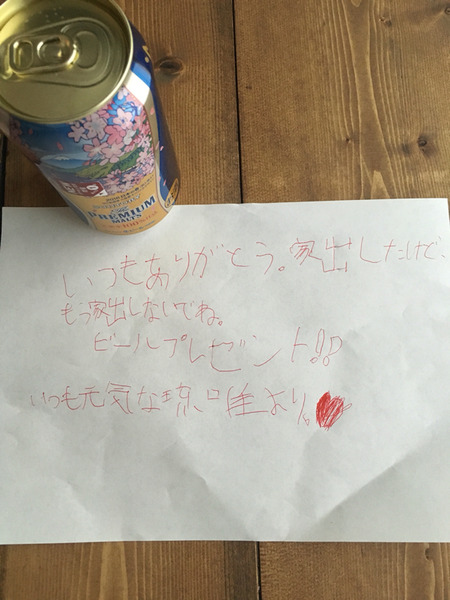 PREMIUM
MALTS
いつもありがとう。家出したけど、
もう家出しないでね。
ビールプレゼント!!
いつも元気な琼、唯より。